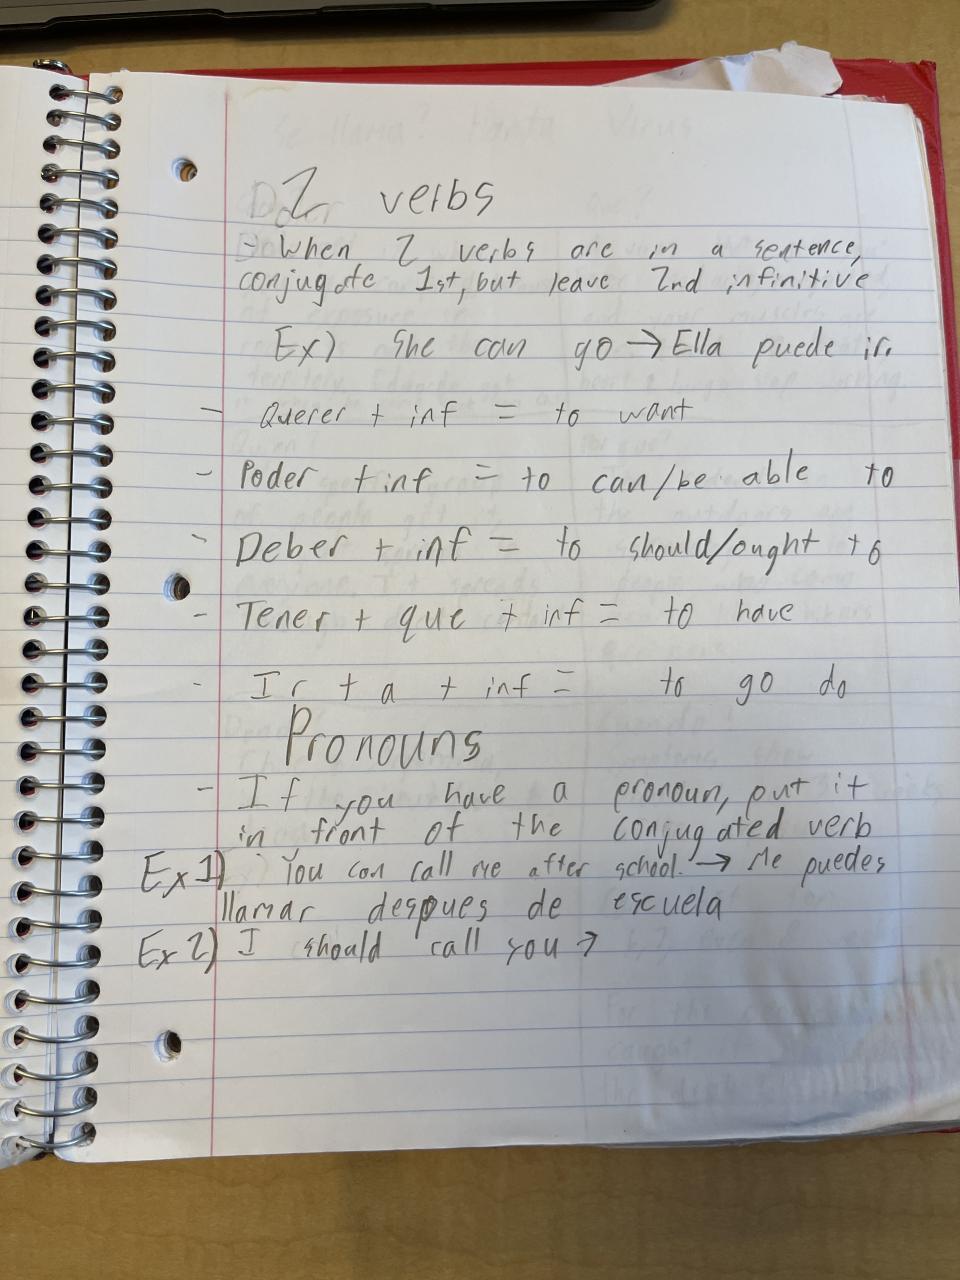 2 verbs
- When 2 verbs are in a sentence,
conjugate 1st, but leave 2nd infinitive
Ex) She can go → Ella puede ir.
- Querer + inf = to want
- Poder + inf = to can/be able to
- Deber + inf = to should/ought to
- Tener + que + inf = to have
- Ir + a + inf = to go do
Pronouns
- If you have a pronoun, put it
in front of the conjugated verb
Ex 1) You can call me after school. → Me puedes
llamar despues de escuela
Ex 2) I should call you →